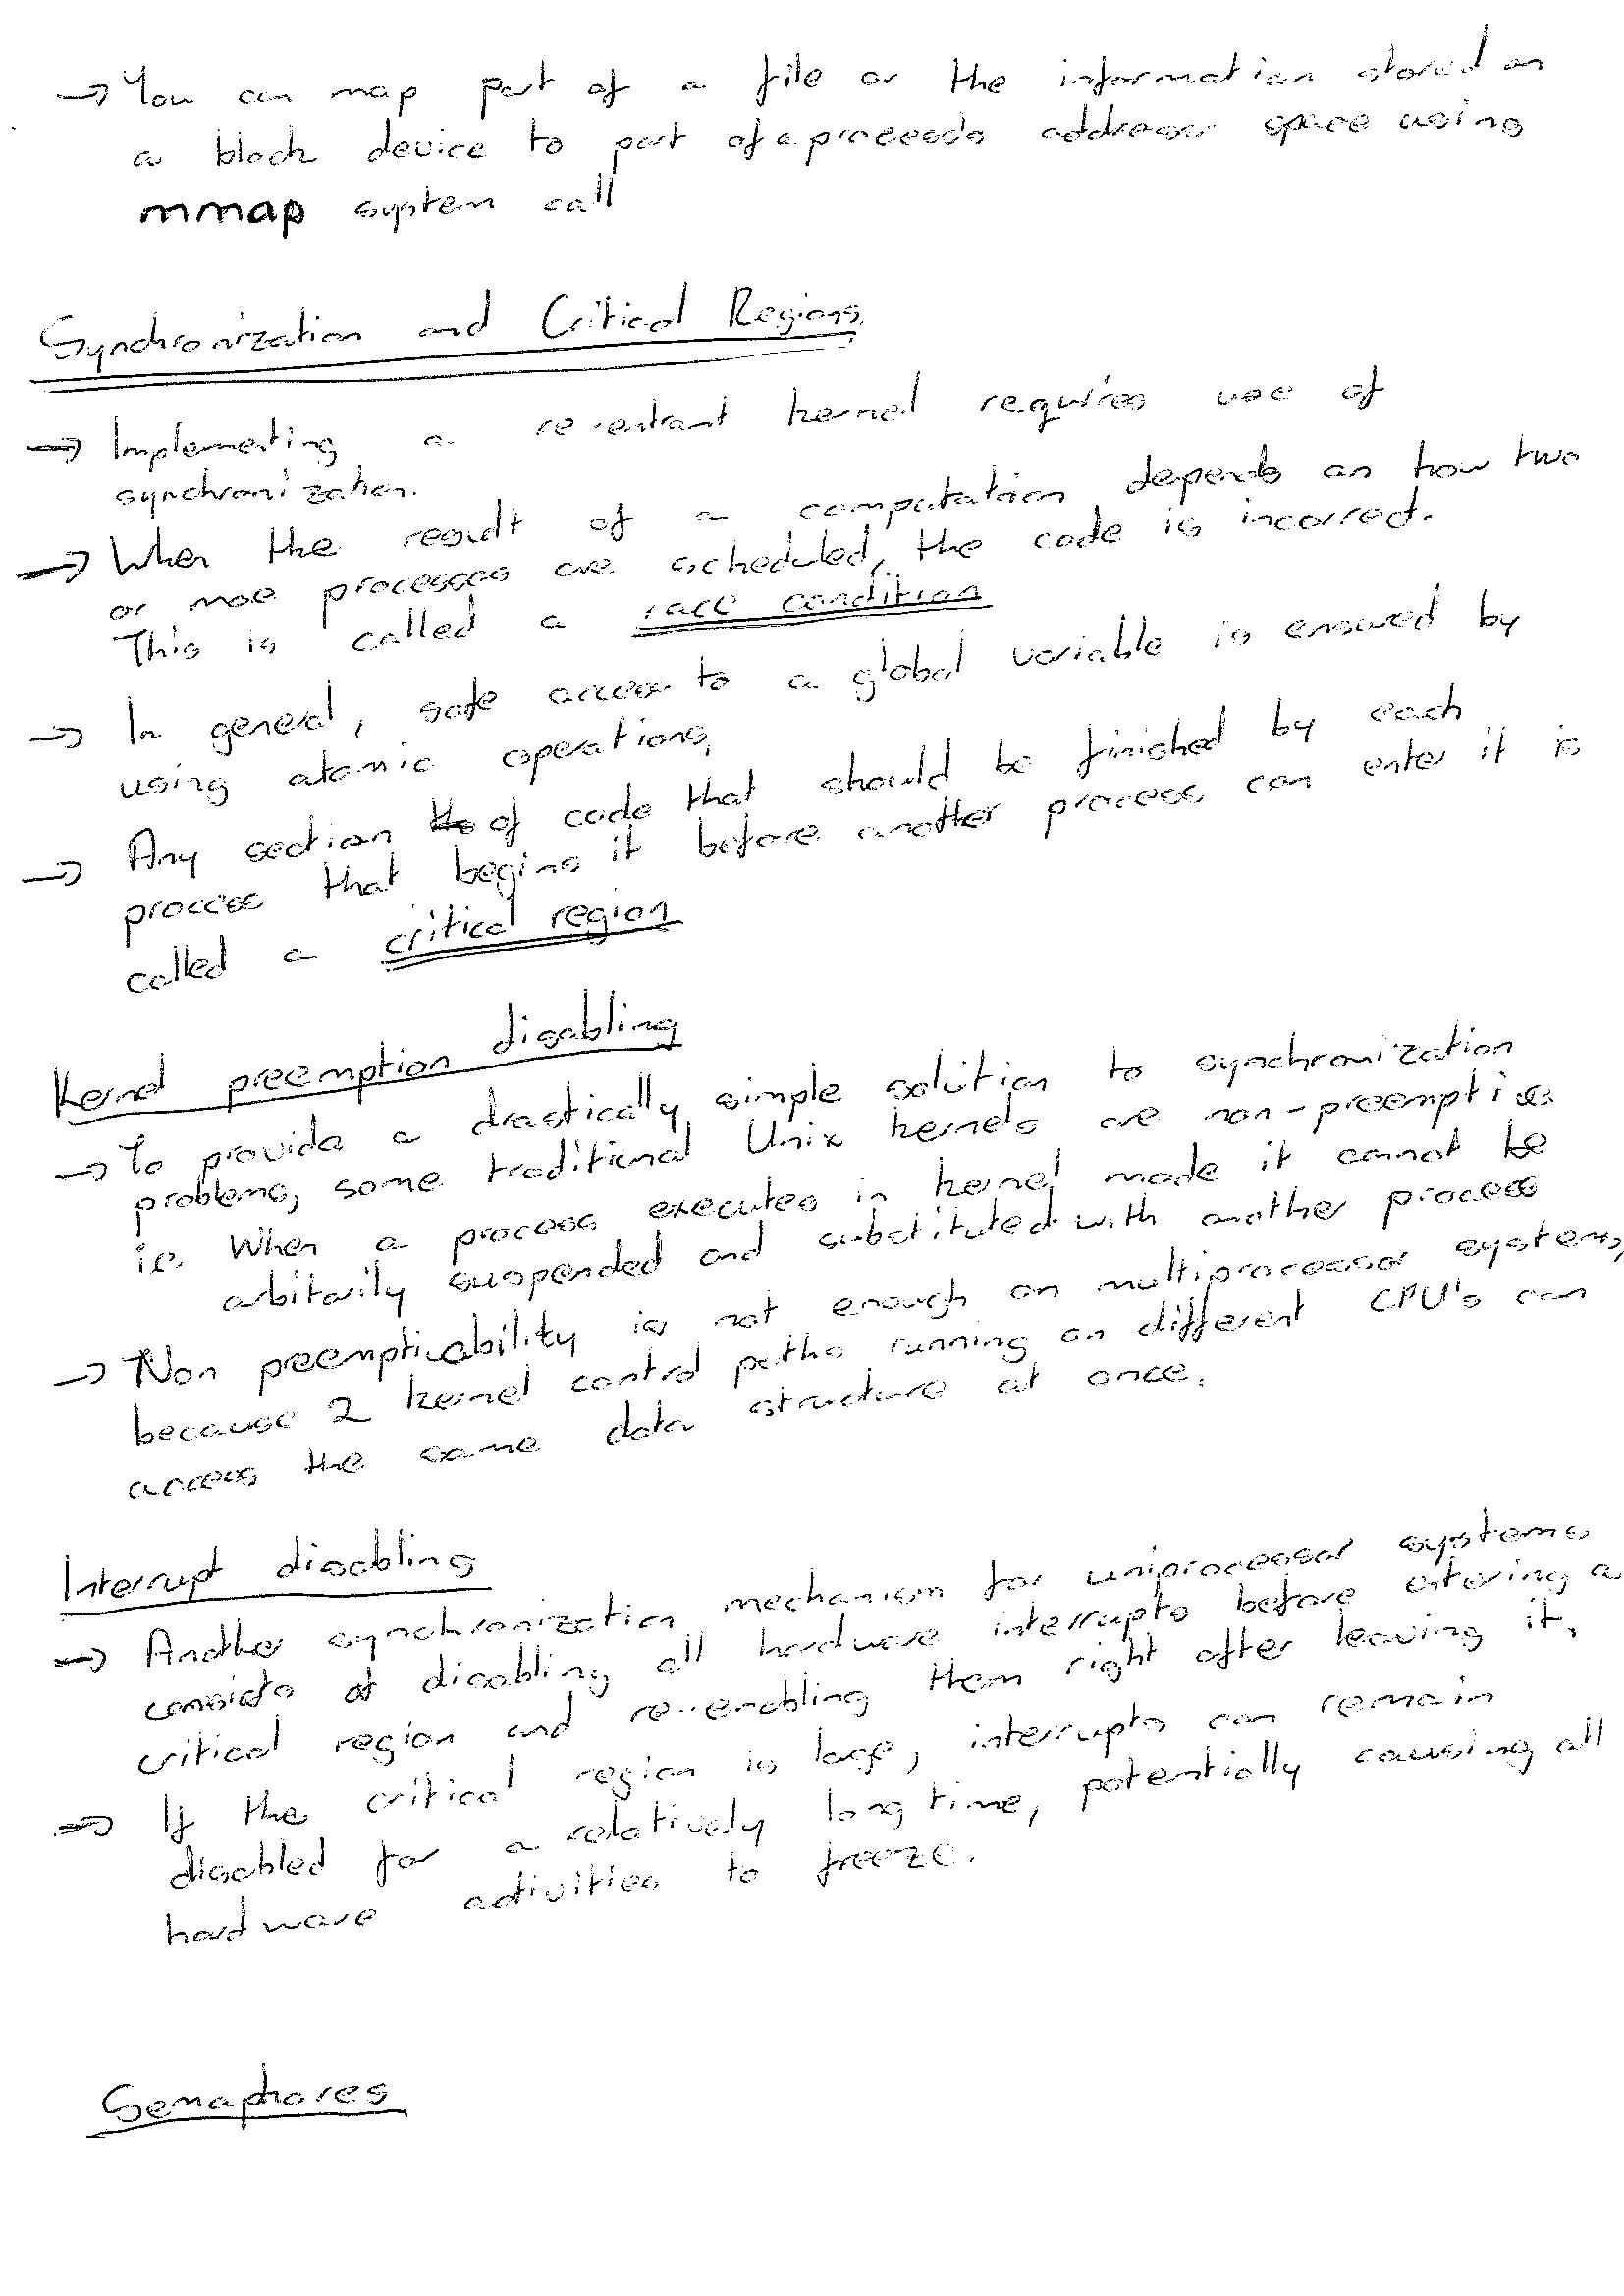 → You can map part of a file or the information stored on
a block device to part of a process's address space using
mmap system call
Synchronization and Critical Regions
→ Implementing a re-entrant kernel requires use of
synchronization.
→ When the result of a computation depends on how two
or more processes are scheduled, the code is incorrect.
This is called a race condition
→ In general, safe access to a global variable is ensured by
using atomic operations,
→ Any section of code that should be finished by each
process that begins it before another process can enter it is
called a critical region
Kernel preemption disabling
→ To provide a drastically simple solution to synchronization
problems, some traditional Unix kernels are non-preemptive
i.e. When a process executes in kernel mode it cannot be
arbitarily suspended and substituted with another process
→ Non preempticability is not enough on multiprocessor systems,
because 2 kernel control paths running on different CPU's can
access the same data structure at once.
Interrupt disabling
→ Another synchronization mechanism for uniprocessor systems
consists of disabling all hardware interrupts before entering a
critical region and re-enabling them right after leaving it.
→ If the critical region is large, interrupts can remain
disabled for a relatively long time, potentially causing all
hardware activities to freeze.
Semaphores